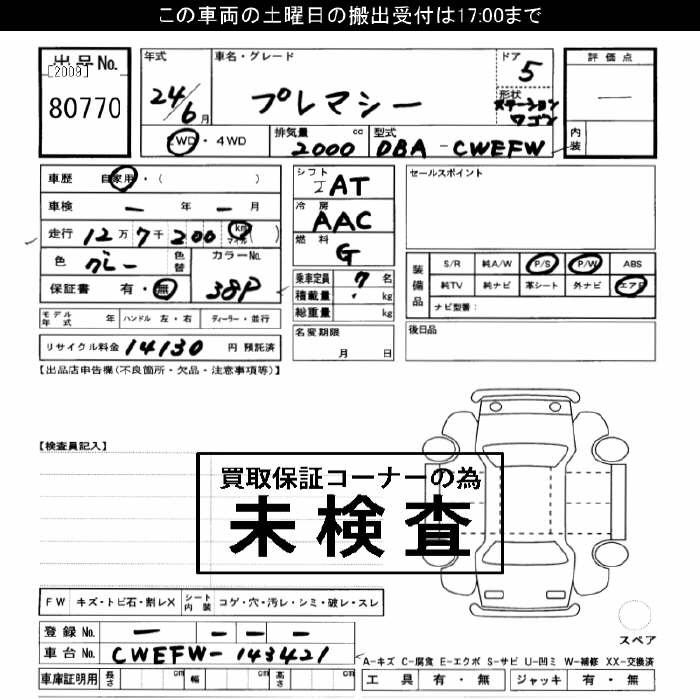 この車両の土曜日の搬出受付は17:00まで
出品No.
[2009]
80770
年式
24/6月
車名・グレード
プレマシー
ドア
5
形状
ステーションワゴン
評価点
―
内装
2WD・4WD
排気量 cc
2000
型式
DBA-CWEFW
車歴 自家用・( )
車検 ― 年 ― 月
走行 12万7千200 km マイル ( )
色 グレー 色替
カラーNo. 38P
保証書 有・無
シフト
IAT
冷房
AAC
燃料
G
乗車定員 7名
積載量 ・ kg
総重量 kg
名変期限
月 日
セールスポイント
装備品
S/R 純A/W P/S P/W ABS
純TV 純ナビ 革シート 外ナビ エアB
ナビ型番:
後日品
モデル年式 年 ハンドル 左・右 ディーラー・並行
リサイクル料金 14130 円 預託済
【出品店申告欄(不良箇所・欠品・注意事項等)】
【検査員記入】
買取保証コーナーの為
未検査
FW キズ・トビ石・割レX シート内装 コゲ・穴・汚レ・シミ・破レ・スレ
登録No. ― ― ― ―
車台No. CWEFW-143421
車庫証明用 長さ cm 幅 cm 高さ cm
スペア
A-キズ C-腐食 E-エクボ S-サビ U-凹ミ W-補修 XX-交換済
工具 有・無 ジャッキ 有・無